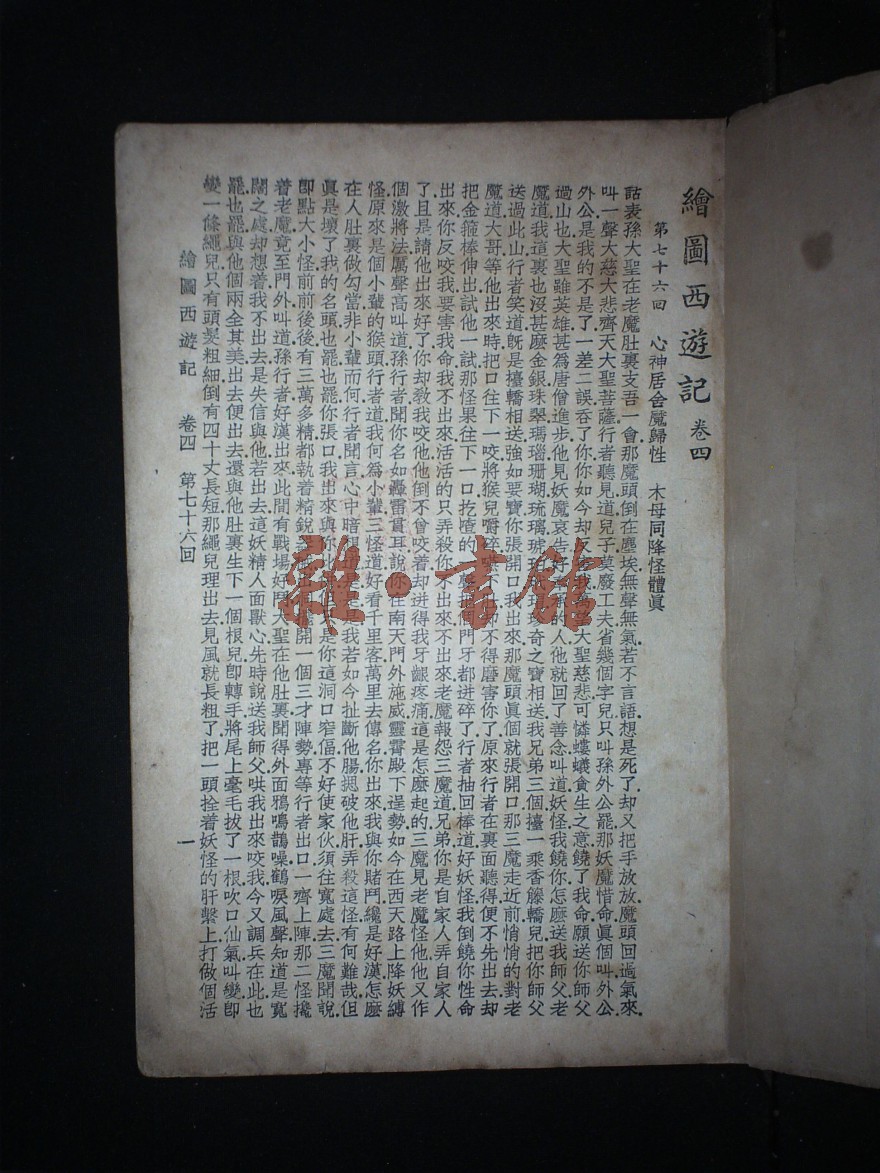 繪圖西遊記 卷四
第七十六回 心神居舍魔歸性 木母同降怪體眞
話表孫大聖在老魔肚裏支吾一會那魔頭倒在塵埃無聲無氣若不言語想是死了却又把手放放魔頭回過氣來
叫一聲大慈大悲齊天大聖菩薩行者聽見道兒子莫廢工夫省幾個字兒只叫孫外公罷那妖魔惜命眞個叫外公
外公是我的不是了一差二誤吞了你你如今却反害我萬望大聖慈悲可憐螻蟻貪生之意饒了我命願送你師父
過山也大聖雖英雄甚爲唐僧進步他見妖魔哀告好奉承的人他就回了善念叫道妖怪我饒你怎麽送我師父老
魔道我這裏也沒甚麽金銀珠翠瑪瑙珊瑚琉璃琥珀玳瑁珍奇之寶相送我兄弟三個擡一乘香籐轎兒把你師父
送過此山行者笑道旣是擡轎相送強如要寶你張開口我出來那魔頭眞個就張開口那三魔走近前悄悄的對老
魔道大哥等他出來時把口往下一咬將猴兒嚼碎嚥下肚却不得磨害你了原來行者在裏面聽得便不先出去却
把金箍棒伸出試他一試那怪果往下一口扢喳的一聲把個門牙都迸碎了行者抽回棒道好妖怪我倒饒你性命
出來你反咬我要害我命我不出來活活的只弄殺你不出來不出來老魔報怨三魔道兄弟你是自家人弄自家人
了且是請他出來好了你却教我咬他他倒不曾咬着却迸得我牙齦疼痛這是怎麽起的三魔見老魔怪他他又作
個激將法厲聲高叫道孫行者聞你名如轟雷貫耳說你在南天門外施威靈霄殿下逞勢如今在西天路上降妖縛
怪原來是個小輩的猴頭行者道我何爲小輩三怪道好看千里客萬里去傳名你出來我與你賭鬥纔是好漢怎麽
在人肚裏做勾當非小輩而何行者聞言心中暗想道是是是我若如今扯斷他腸揌破他肝弄殺這怪有何難哉但
眞是壞了我的名頭也罷也罷你張口我出來與你比併但只是你這洞口窄偪不好使家伙須往寬處去三魔聞說
卽點大小怪前前後後有三萬多精都執着精銳器械出洞擺開一個三才陣勢專等行者出口一齊上陣那二怪攙
着老魔竟至門外叫道孫行者好漢出來此間有戰場好鬥大聖在他肚裏聞得外面鴉鳴鵲噪鶴唳風聲知道是寬
闊之處却想着我不出去是失信與他若出去這妖精人面獸心先時說送我師父哄我出來咬我今又調兵在此也
罷也罷與他個兩全其美出去便出去還與他肚裏生下一個根兒卽轉手將尾上毫毛拔了一根吹口仙氣叫變卽
變一條繩兒只有頭髮粗細倒有四十丈長短那繩兒理出去見風就長粗了把一頭拴着妖怪的肝繫上打做個活
繪圖西遊記 卷四 第七十六回 一
雜·書館